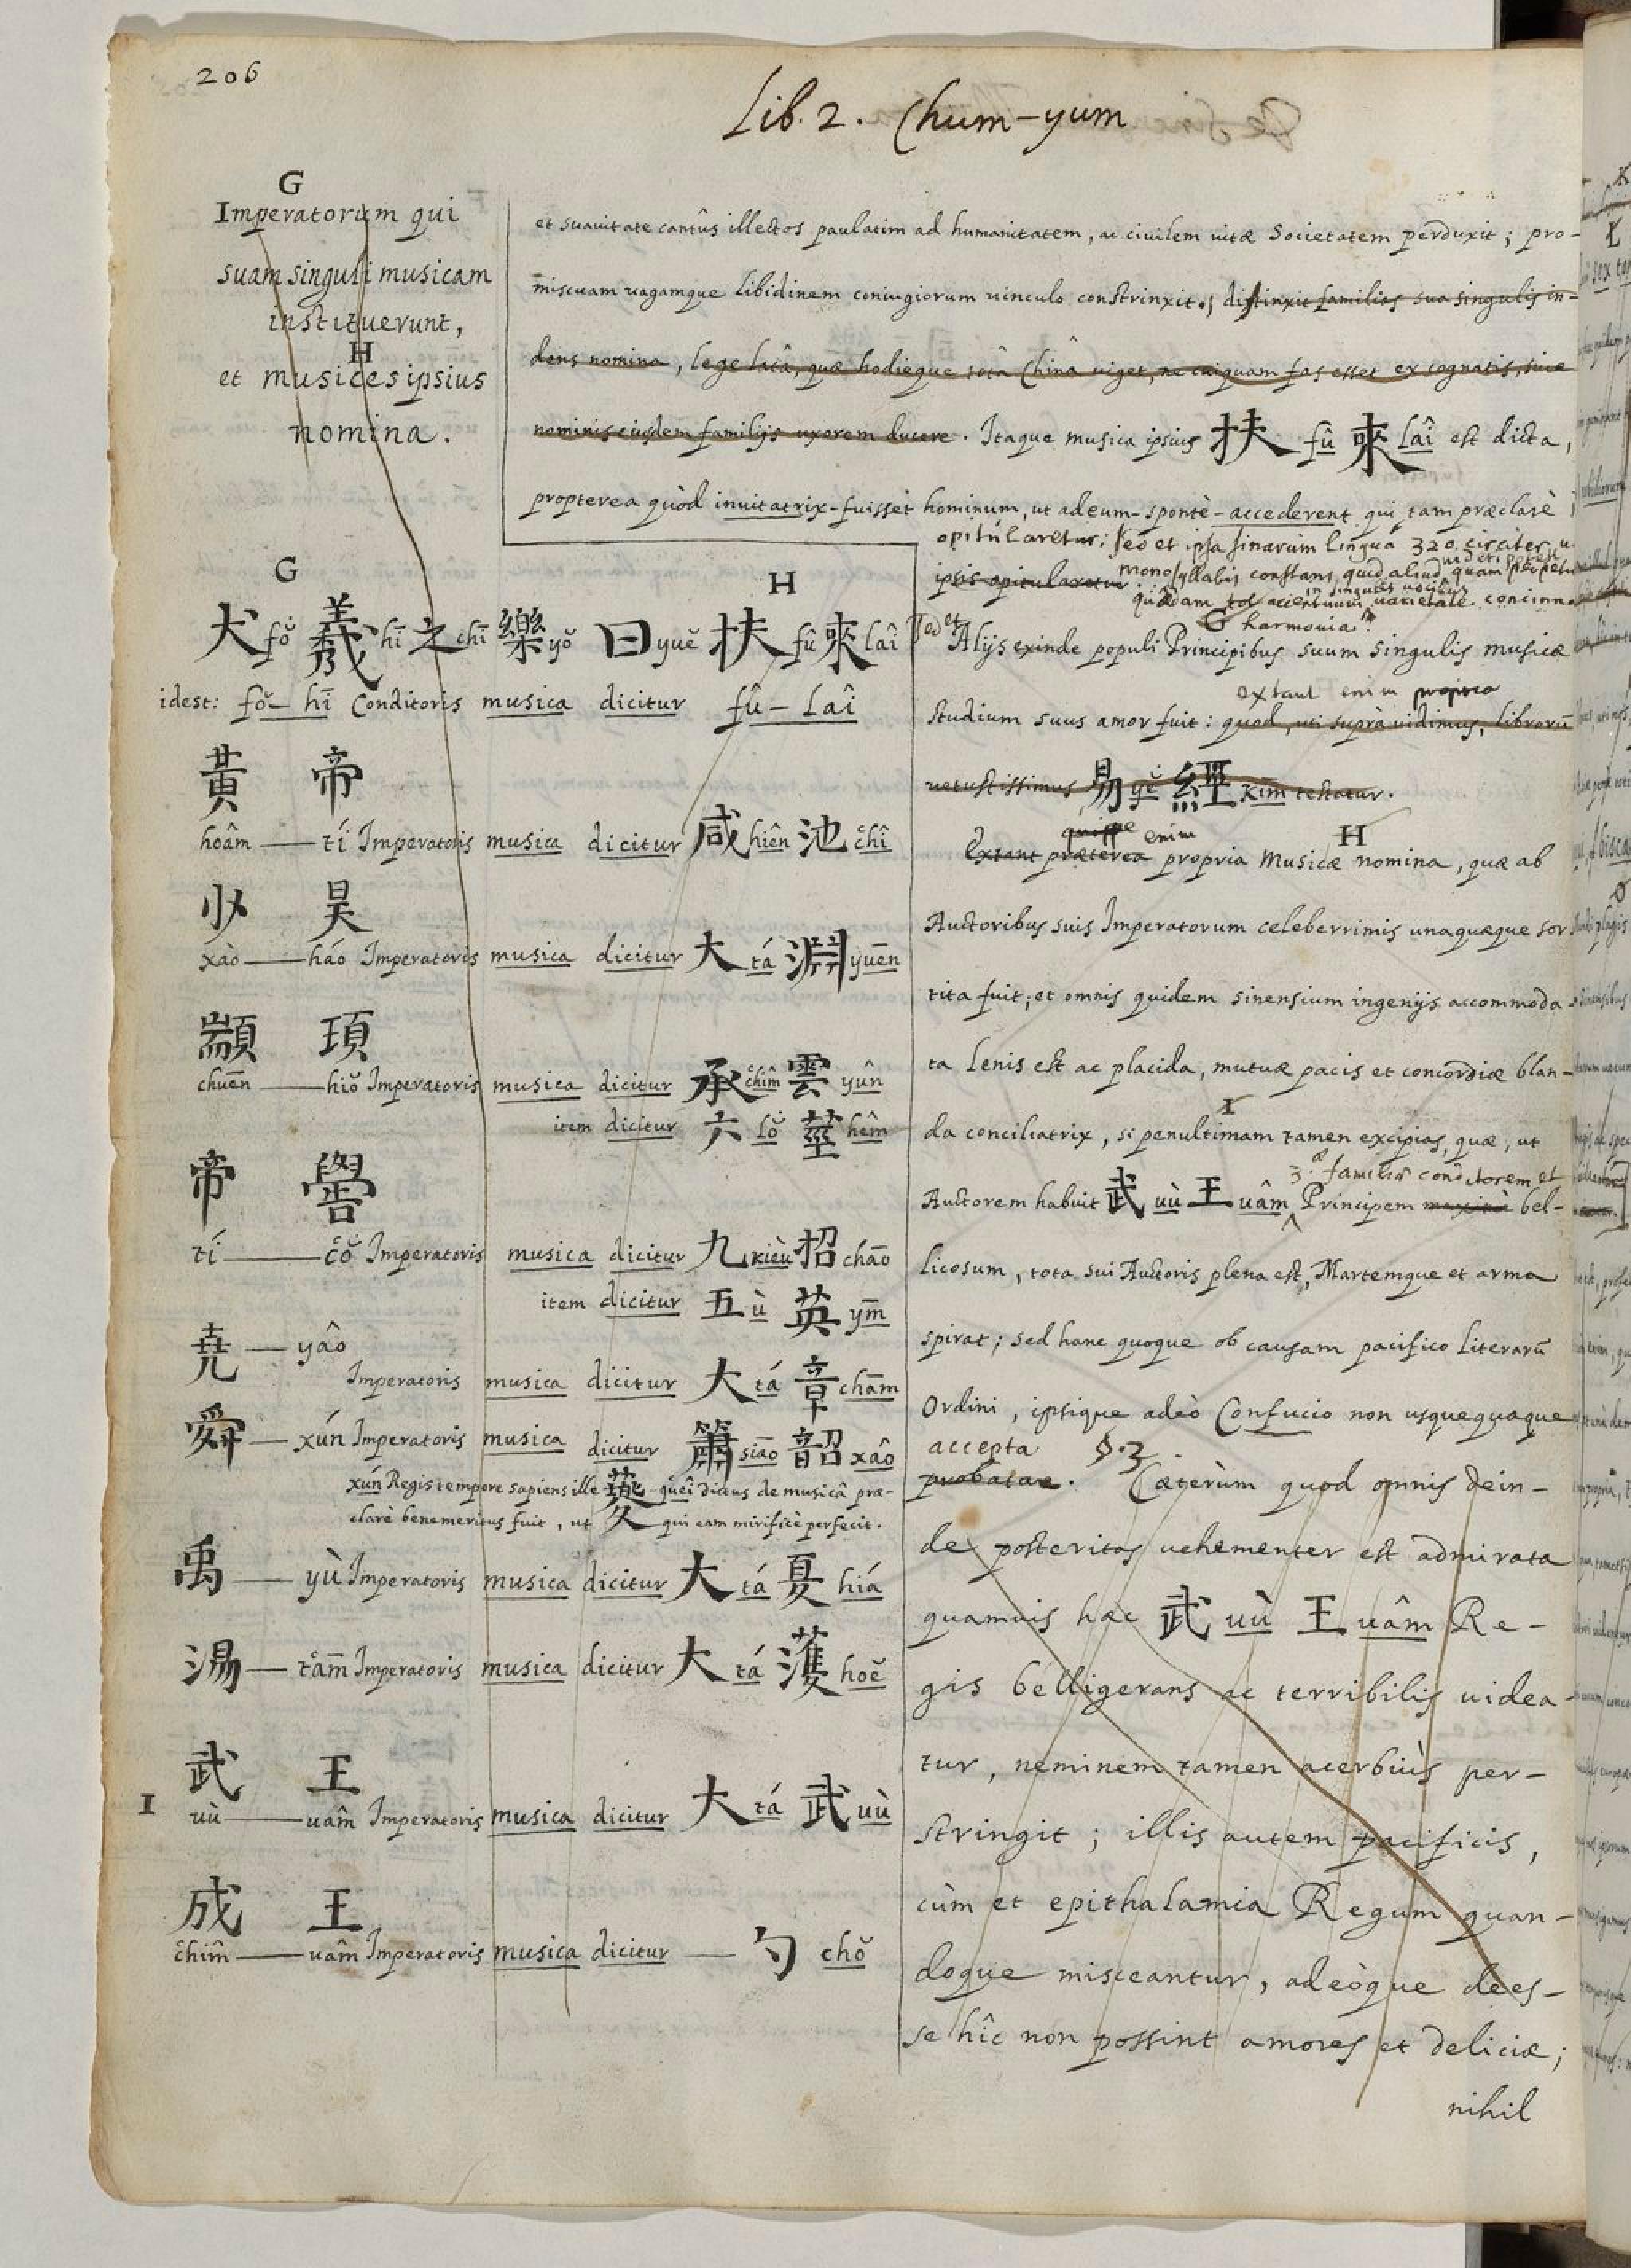 206
Lib. 2. Chum-yum
G
Imperatorum qui
suam singuli musicam
instituerunt,
H
et musices ipsius
nomina.
et suauitate cantûs illectos paulatim ad humanitatem, ac ciuilem uitæ Societatem perduxit; pro-
miscuam uagamque libidinem coniugiorum uinculo constrinxit; distinxit familias sua singulis in-
dens nomina, lege latâ, quæ hodieque totâ Chinâ uiget, ne cuiquam fas esset ex cognatis, siue
nominis eiusdem familijs uxorem ducere. Itaque musica ipsius 扶 fû 來 laî est dicta,
propterea quòd inuitatrix fuisset hominum, ut ad eum sponte accederent qui tam præclarè
opitularetur; sed et ipsa sinarum lingua 320 circiter
ipsis opitularetur monosyllabis constans, quid aliud quam perpetu
quædam tot accentuum in singulis uocibus uarietate concinn
harmonia
G
H
犬 fŏ 羲 hī 之 chī 樂 yŏ 曰 yuĕ 扶 fû 來 laî
idest: fŏ-hī Conditoris musica dicitur fû-laî
黃 帝
hoâm — tí Imperatoris musica dicitur 咸 hiên 池 chî
少 昊
xào — háo Imperatoris musica dicitur 大 tá 淵 yuēn
顓 頊
chuēn — hiŏ Imperatoris musica dicitur 承 chîm 雲 yûn
item dicitur 六 lŏ 莖 hêm
帝 嚳
tí — cŏ Imperatoris musica dicitur 九 kièu 招 chāo
item dicitur 五 ù 英 ym̄
堯 — yâo
Imperatoris musica dicitur 大 tá 章 chām
舜 — xún Imperatoris musica dicitur 簫 siāo 韶 xâo
xún Regis tempore sapiens ille 夔 quêi dictus de musicâ præ-
clarè benemeritus fuit, ut qui eam mirificè perfecit.
禹 — yù Imperatoris musica dicitur 大 tá 夏 hiá
湯 — tām Imperatoris musica dicitur 大 tá 濩 hoĕ
武 王
I uù — uâm Imperatoris musica dicitur 大 tá 武 uù
成 王
chîm — uâm Imperatoris musica dicitur — 勺 chŏ
Sed et Alijs exinde populi Principibus suum singulis musicæ
extant enim propria
studium suus amor fuit: quod, uti suprà uidimus, librorū
uetustissimus 易 yĕ 經 kīm testatur.
quippe enim H
Extant præterea propria Musicæ nomina, quæ ab
Auctoribus suis Imperatorum celeberrimis unaquæque sor
tita fuit; et omnis quidem sinensium ingenijs accommoda
ta lenis est ac placida, mutuæ pacis et concordiæ blan-
I
da conciliatrix, si penultimam tamen excipias, quæ, ut
3.æ familiæ conditorem et
Auctorem habuit 武 uù 王 uâm Principem maximè bel-
licosum, tota sui Auctoris plena est, Martemque et arma
spirat; sed hanc quoque ob causam pacifico Literarū
Ordini, ipsique adeò Confucio non usquequaque
accepta §.3.
probatae. Cæterùm quod omnis dein-
de posteritas uehementer est admirata
quamuis hæc 武 uù 王 uâm Re-
gis belligerans ac terribilis uidea-
tur, neminem tamen acerbiùs per-
stringit; illis autem pacificis,
cùm et epithalamia Regum quan-
doque misceantur, adeòque dees-
se hîc non possint amores et deliciæ;
nihil